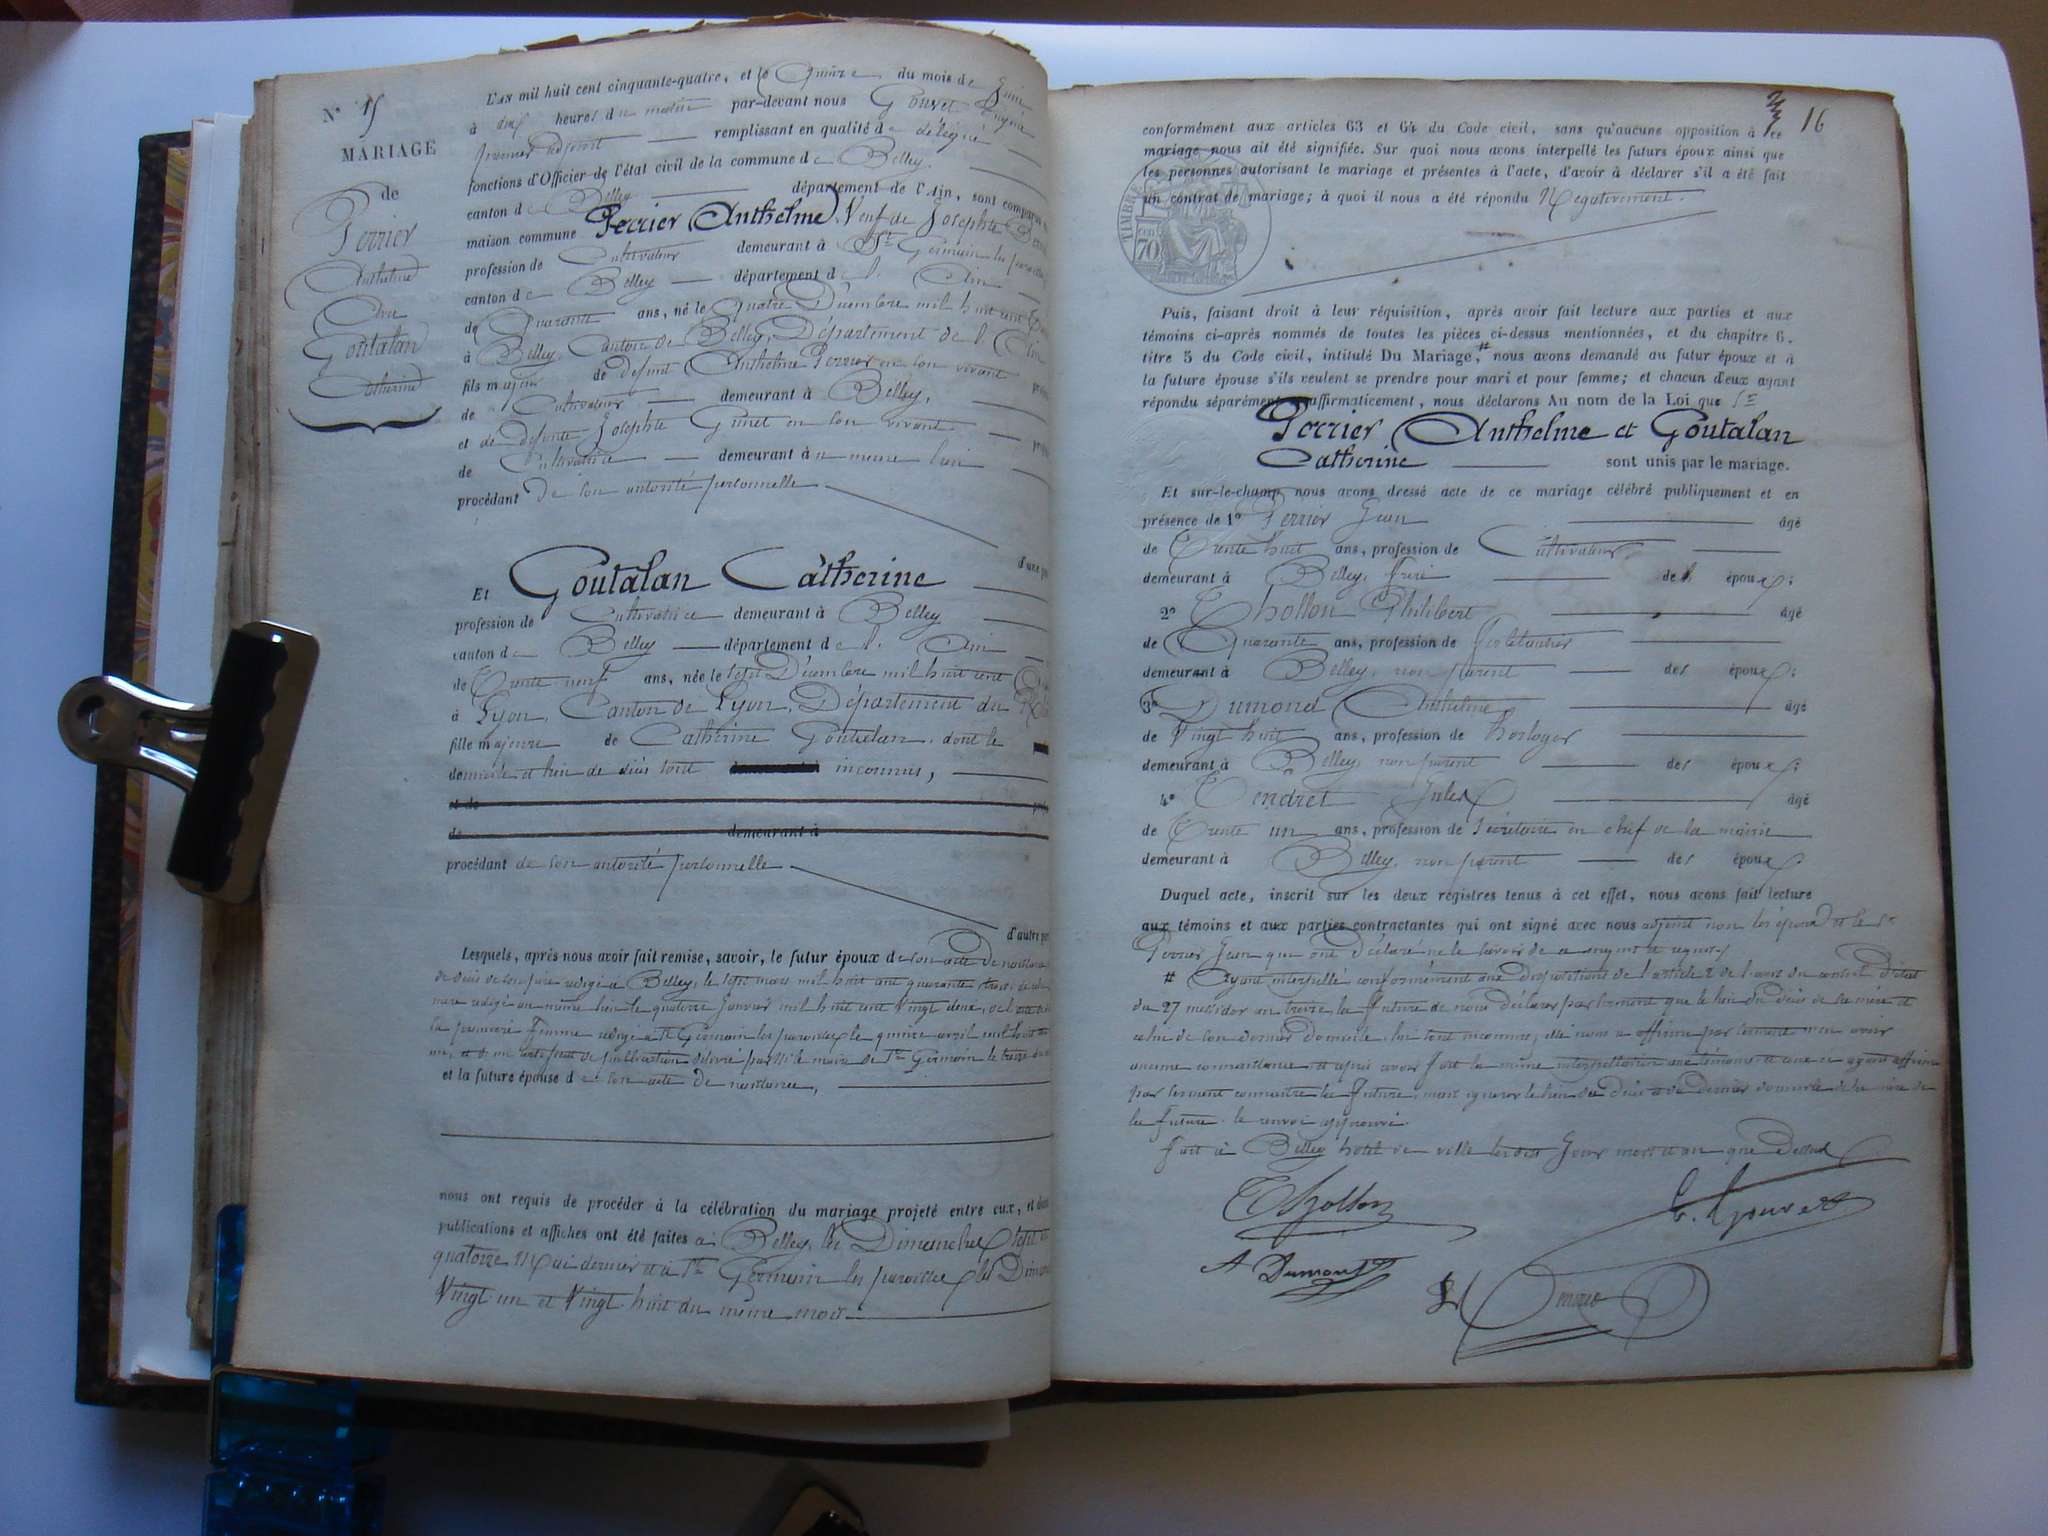 N° 15
MARIAGE
de
Perrier
Anthelme
Goutalan
Catherine
L'AN mil huit cent cinquante-quatre, et le Quinze du mois de Juin
à dix heures du matin par-devant nous Gouvet
premier adjoint remplissant en qualité de délégué
fonctions d'Officier de l'état civil de la commune de Belley.
canton de Belley département de l'Ain, sont comparus
maison commune Perrier Anthelme, Veuf de Josephte
profession de Cultivateur demeurant à St Germain les paroisses
canton de Belley département de l' Ain
de Quarante ans, né le quatre Décembre mil huit cent
à Belley, Canton de Belley, Département de l'Ain
fils majeur de defunt Anthelme Perrier en son vivant
de Cultivateur demeurant à Belley,
et de defunte Josephte Ginet en son vivant
de Cultivatrice demeurant au meme lieu
procédant de son autorité personnelle
d'une
Et Goutalan Catherine
profession de Cultivatrice demeurant à Belley
canton de Belley département de l' Ain
de Trente neuf ans, née le sept Décembre mil huit cent
à Lyon, Canton de Lyon, Département du
fille majeure de Catherine Goutalan, dont le
domicile et lieu de décès sont inconnus,
et de
de demeurant à
procédant de son autorité personnelle
d'autre
Lesquels, après nous avoir fait remise, savoir, le futur époux de son acte de naissance
de décès de son père redigé a Belley, le sept mars mil huit cent quarante trois, de
mere redigé au même lieu le quatorze Janvier mil huit cent Vingt deux, de
la premiere femme redigé a St Germain les paroisses le quinze avril mil huit
et d'un certificat de publication delivré par Mr le maire de St Germain le treize
et la future épouse de son acte de naissance,
nous ont requis de procéder à la célébration du mariage projeté entre eux, et dont
publications et affiches ont été faites à Belley, les Dimanches sept et
quatorze Mai dernier et a St Germain les paroisses les
Vingt-un et Vingt-huit du même mois
16
conformément aux articles 63 et 64 du Code civil, sans qu'aucune opposition à ce
mariage nous ait été signifiée. Sur quoi nous avons interpellé les futurs époux ainsi que
les personnes autorisant le mariage et présentes à l'acte, d'avoir à déclarer s'il a été fait
un contrat de mariage; à quoi il nous a été répondu Négativement.
TIMBRE
70
Puis, faisant droit à leur réquisition, après avoir fait lecture aux parties et aux
témoins ci-après nommés de toutes les pièces ci-dessus mentionnées, et du chapitre 6,
titre 5 du Code civil, intitulé Du Mariage, # nous avons demandé au futur époux et à
la future épouse s'ils veulent se prendre pour mari et pour femme; et chacun d'eux ayant
répondu séparément et affirmativement, nous déclarons Au nom de la Loi que
Perrier Anthelme et Goutalan
Catherine sont unis par le mariage.
Et sur-le-champ nous avons dressé acte de ce mariage célébré publiquement et en
présence de 1° Perrier Jean âgé
de Trente huit ans, profession de Cultivateur
demeurant à Belley, frère de l' époux;
2° Thollon Philibert âgé
de Quarante ans, profession de Ferblantier
demeurant à Belley, non parent des époux;
3° Dumond Anthelme âgé
de Vingt huit ans, profession de horloger
demeurant à Belley, non parent des époux;
4° Tendret Jules âgé
de Trente un ans, profession de Secrétaire en chef de la mairie
demeurant à Belley, non parent des époux
Duquel acte, inscrit sur les deux registres tenus à cet effet, nous avons fait lecture
aux témoins et aux parties contractantes qui ont signé avec nous adjoint non les époux et le Sr
Perrier Jean qui ont déclaré ne le savoir de ce enquis et requis
# Ayant interpellé conformément aux dispositions de l'article 2 de l'avis du conseil d'état
du 27 messidor an treize la future de nous déclarer par serment que le lieu du décès de sa mère et
celui de son dernier domicile lui sont inconnus, elle nous a affirmé par serment n'en avoir
aucune connaissance et après avoir fait la même interpellation aux témoins et ceux ci ayant affirmé
par serment connaitre la future, mais ignorer le lieu du décès et de dernier domicile de la mère de
la future. le renvoi approuvé.
fait à Belley hotel de ville les dits Jour mois et an que dessus
Thollon
E. Gouvet
A Dumont